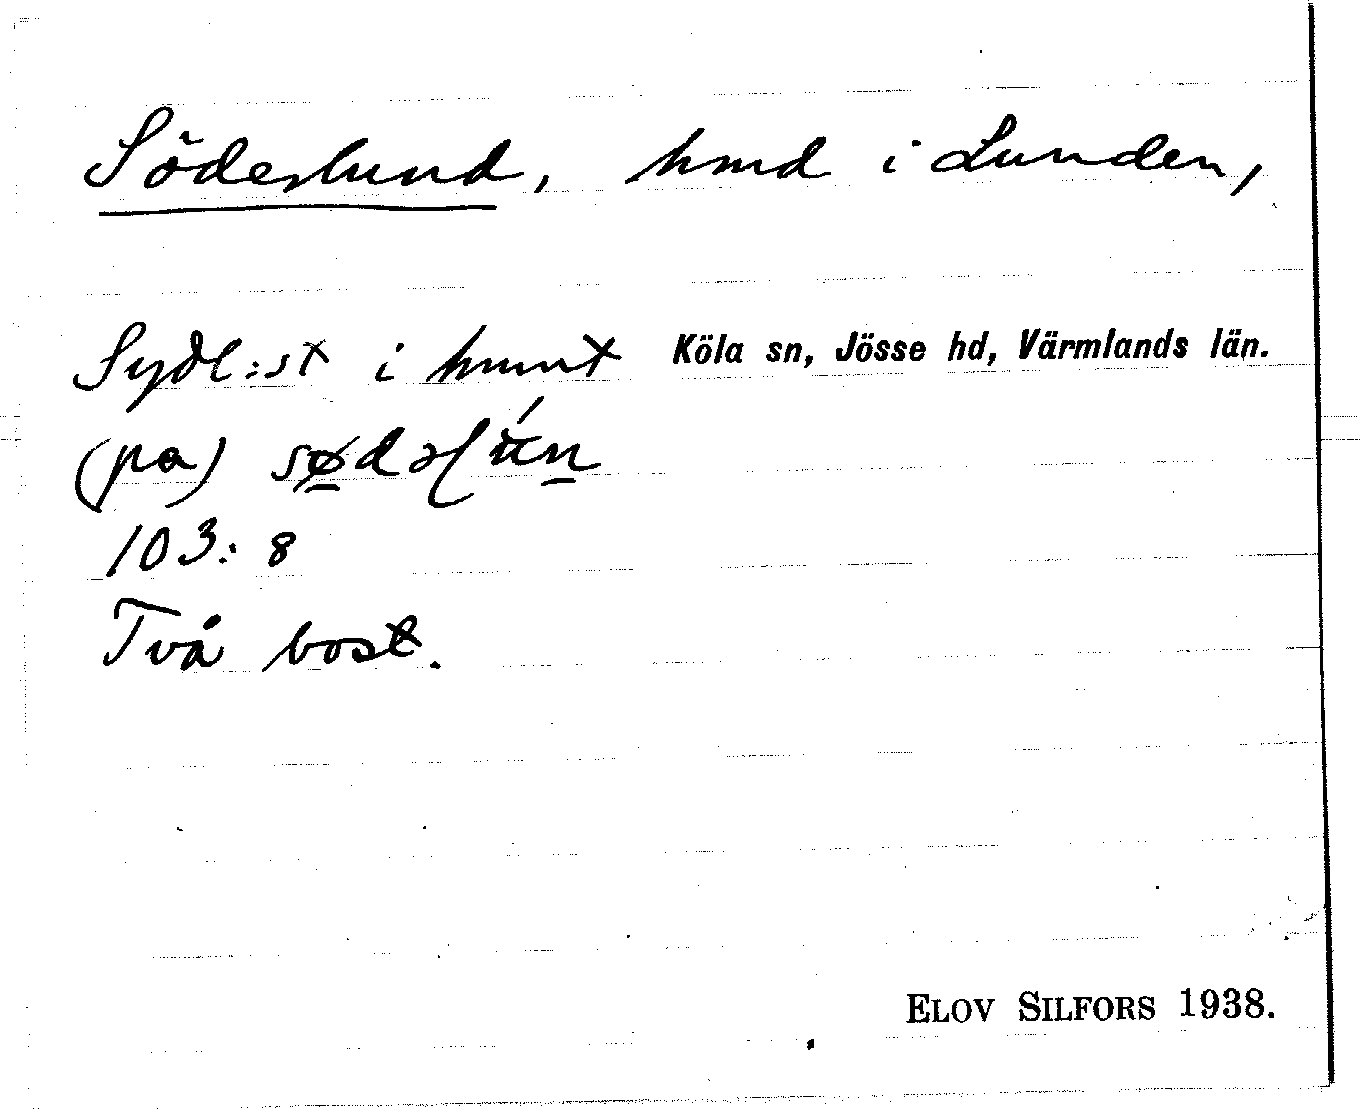 Söderlund, hmd i Lunden,
Sydl:st i hmnt Köla sn, Jösse hd, Värmlands län.
(pa)
103: 8
Två bost.
ELOV SILFORS 1938.